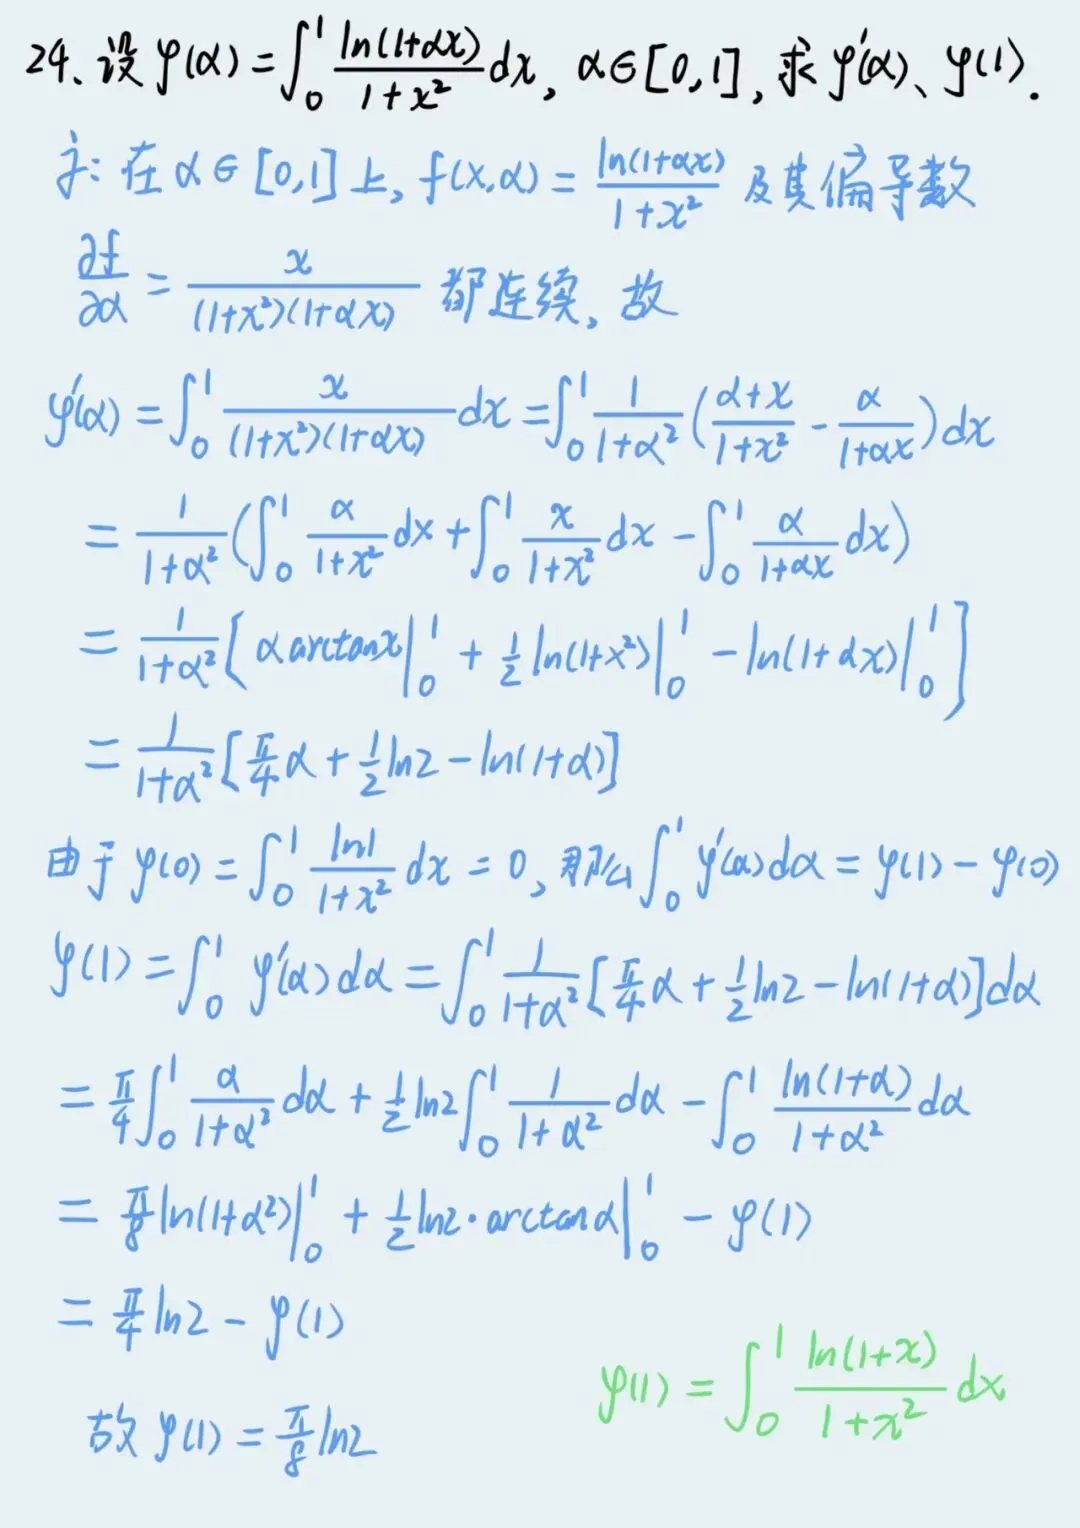 24、设 φ(α) = ∫₀¹ ln(1+αx)/(1+x²) dx, α∈[0,1], 求 φ'(α)、φ(1).
解: 在 α∈[0,1] 上, f(x,α) = ln(1+αx)/(1+x²) 及其偏导数
∂f/∂α = x/((1+x²)(1+αx)) 都连续, 故
φ'(α) = ∫₀¹ x/((1+x²)(1+αx)) dx = ∫₀¹ 1/(1+α²) ((α+x)/(1+x²) - α/(1+αx)) dx
= 1/(1+α²) (∫₀¹ α/(1+x²) dx + ∫₀¹ x/(1+x²) dx - ∫₀¹ α/(1+αx) dx)
= 1/(1+α²) [α arctanx|₀¹ + ½ ln(1+x²)|₀¹ - ln(1+αx)|₀¹]
= 1/(1+α²) [π/4 α + ½ ln2 - ln(1+α)]
由于 φ(0) = ∫₀¹ ln1/(1+x²) dx = 0, 那么 ∫₀¹ φ'(α)dα = φ(1) - φ(0)
φ(1) = ∫₀¹ φ'(α)dα = ∫₀¹ 1/(1+α²) [π/4 α + ½ ln2 - ln(1+α)]dα
= π/4 ∫₀¹ α/(1+α²) dα + ½ ln2 ∫₀¹ 1/(1+α²) dα - ∫₀¹ ln(1+α)/(1+α²) dα
= π/8 ln(1+α²)|₀¹ + ½ ln2·arctanα|₀¹ - φ(1)
= π/4 ln2 - φ(1)
φ(1) = ∫₀¹ ln(1+x)/(1+x²) dx
故 φ(1) = π/8 ln2